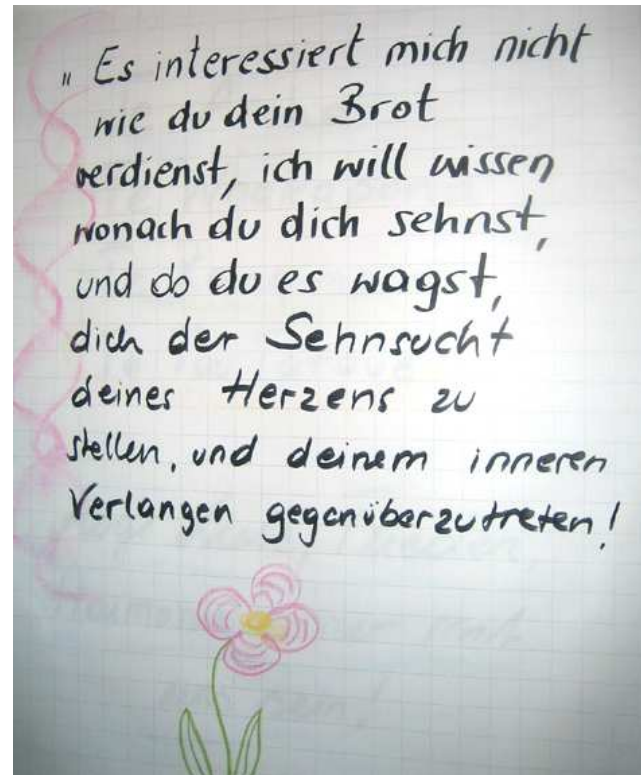 „ Es interessiert mich nicht
wie du dein Brot
verdienst, ich will wissen
wonach du dich sehnst,
und ob du es wagst,
dich der Sehnsucht
deines Herzens zu
stellen, und deinem inneren
Verlangen gegenüberzutreten!